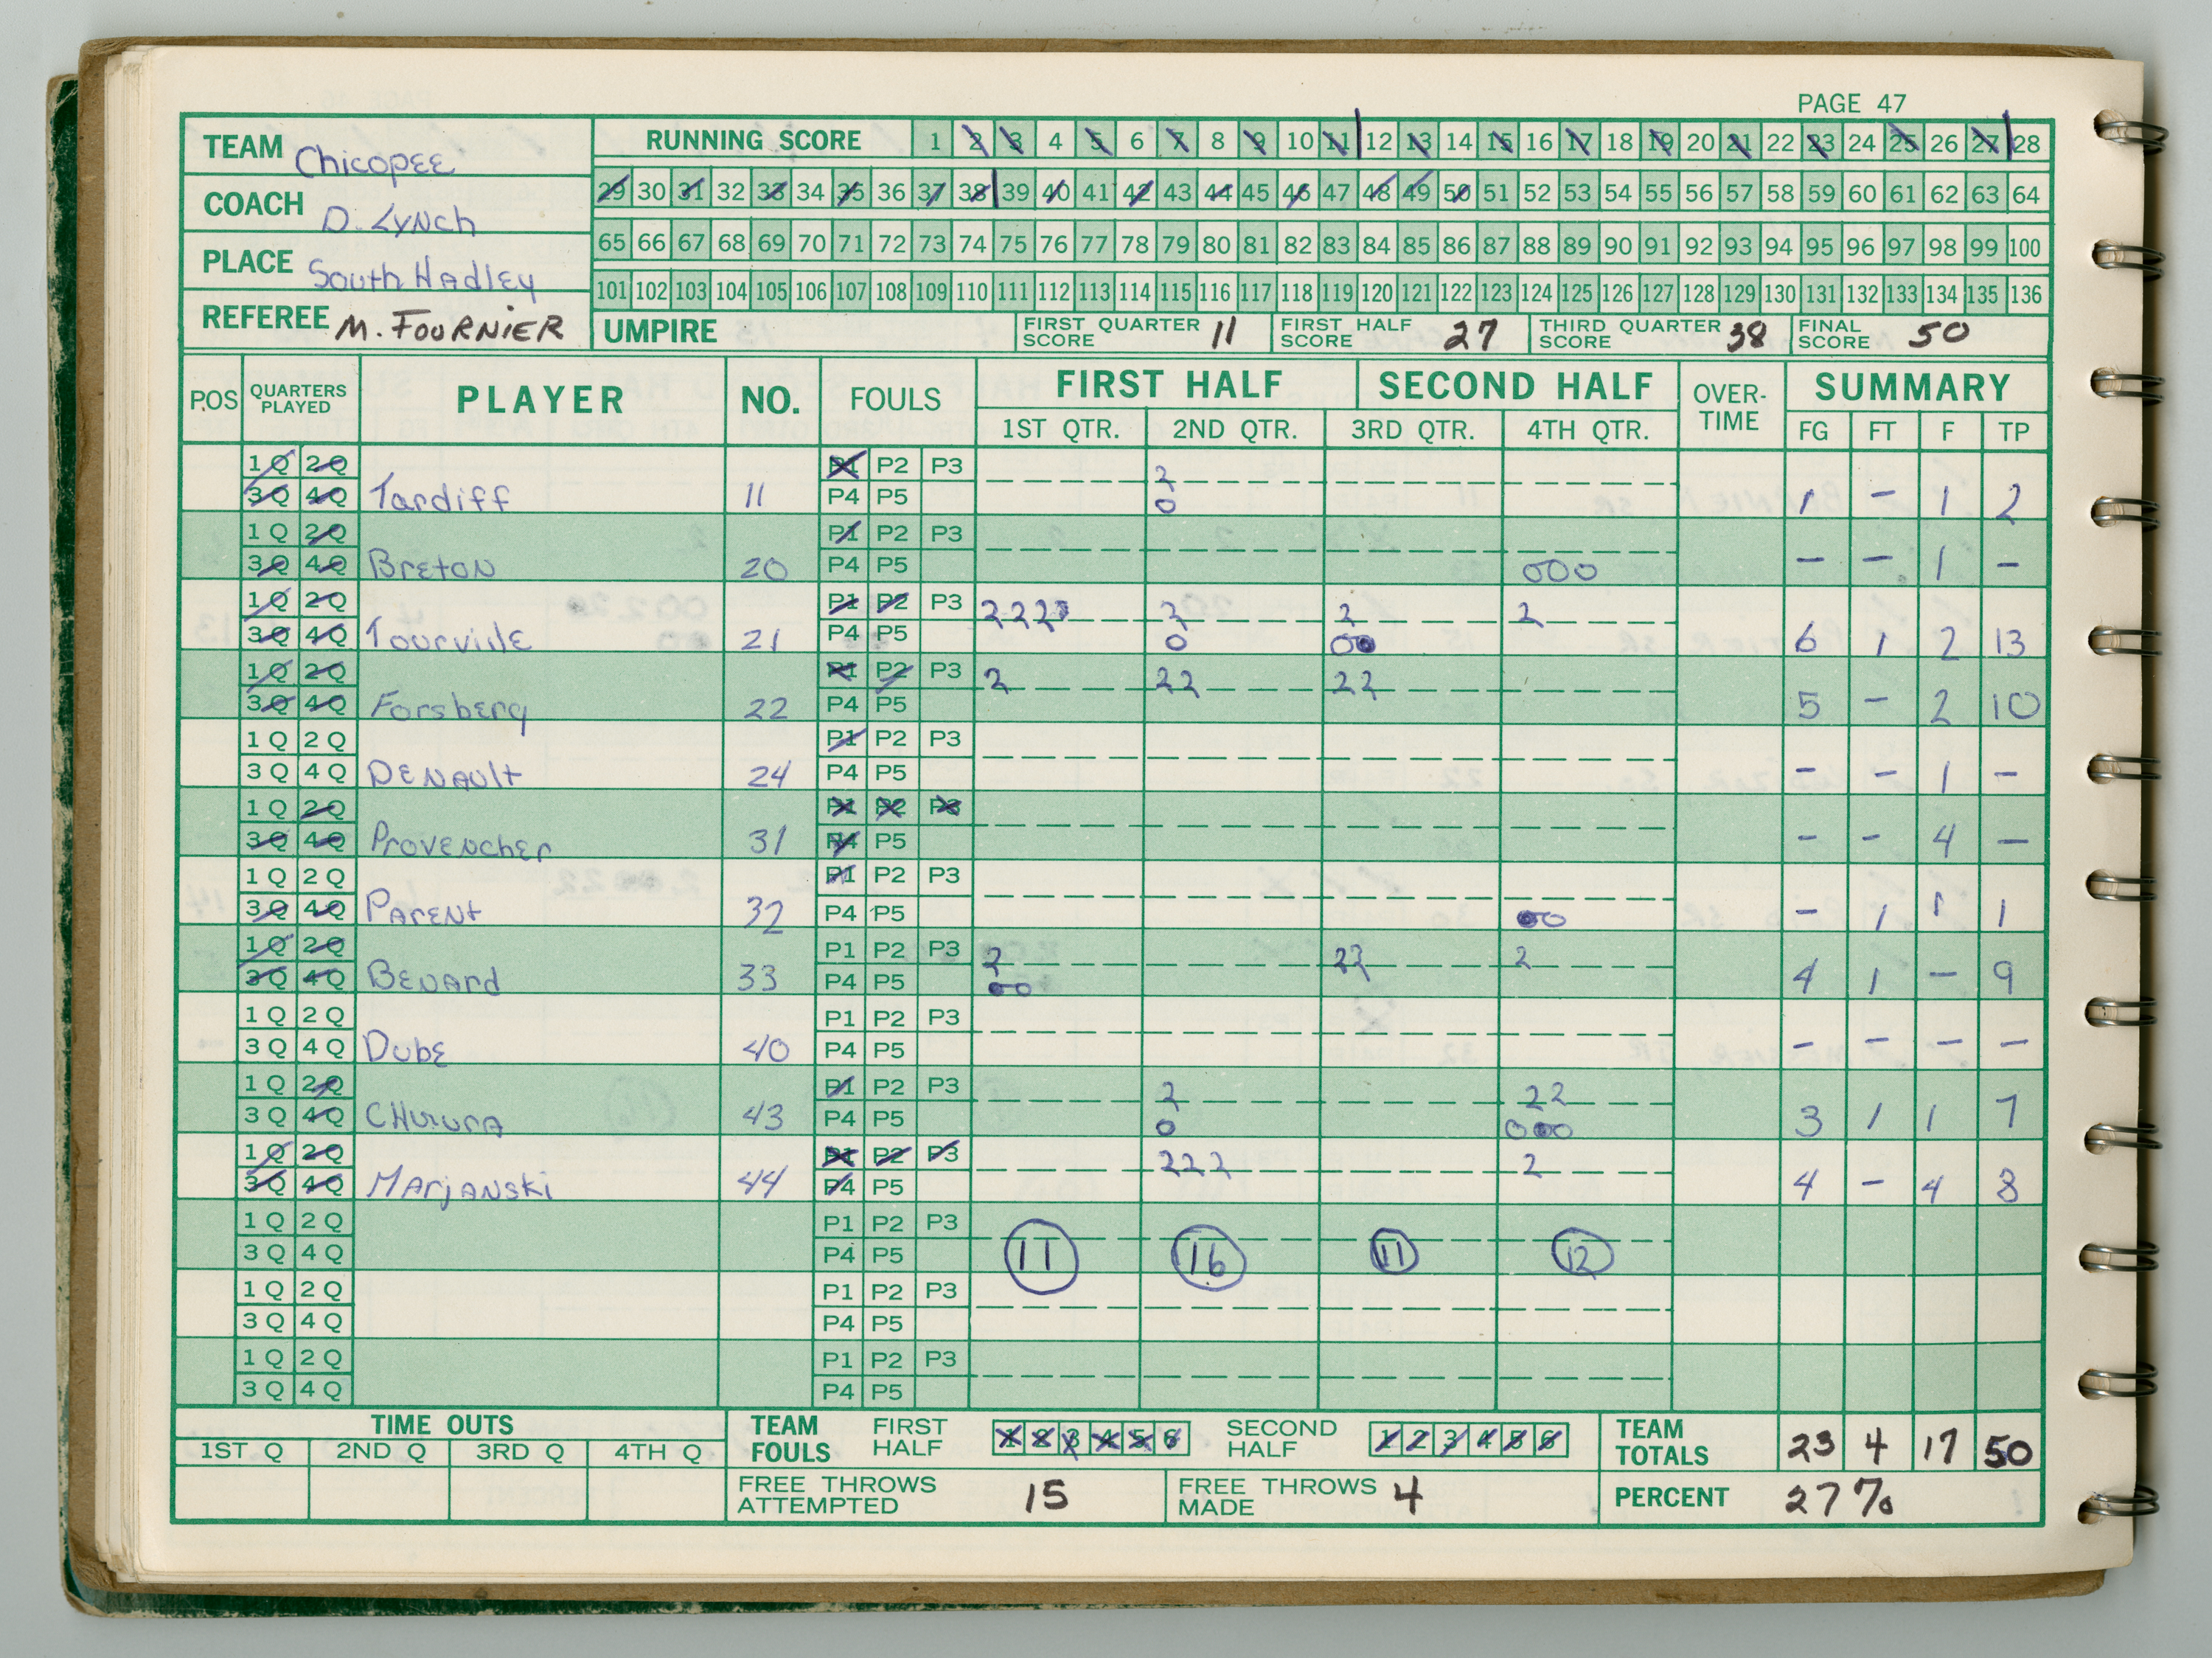 PAGE 47
TEAM Chicopee
COACH D. Lynch
PLACE South Hadley
REFEREE M. FOURNIER
RUNNING SCORE 1 2 3 4 5 6 7 8 9 10 11 12 13 14 15 16 17 18 19 20 21 22 23 24 25 26 27 28
29 30 31 32 33 34 35 36 37 38 39 40 41 42 43 44 45 46 47 48 49 50 51 52 53 54 55 56 57 58 59 60 61 62 63 64
65 66 67 68 69 70 71 72 73 74 75 76 77 78 79 80 81 82 83 84 85 86 87 88 89 90 91 92 93 94 95 96 97 98 99 100
101 102 103 104 105 106 107 108 109 110 111 112 113 114 115 116 117 118 119 120 121 122 123 124 125 126 127 128 129 130 131 132 133 134 135 136
UMPIRE FIRST QUARTER SCORE 11 FIRST HALF SCORE 27 THIRD QUARTER SCORE 38 FINAL SCORE 50
POS QUARTERS PLAYED PLAYER NO. FOULS FIRST HALF SECOND HALF OVER-TIME SUMMARY
1ST QTR. 2ND QTR. 3RD QTR. 4TH QTR. FG FT F TP
1Q 2Q P1 P2 P3 2
3Q 4Q Tardiff 11 P4 P5 0 1 - 1 2
1Q 2Q P1 P2 P3
3Q 4Q Breton 20 P4 P5 000 - - 1 -
1Q 2Q P1 P2 P3 2222 2 2 2
3Q 4Q Tourville 21 P4 P5 0 00 6 1 2 13
1Q 2Q P1 P2 P3 2 22 22
3Q 4Q Forsberg 22 P4 P5 5 - 2 10
1Q 2Q P1 P2 P3
3Q 4Q DENAULT 24 P4 P5 - - 1 -
1Q 2Q P1 P2 P3
3Q 4Q Provencher 31 P4 P5 - - 4 -
1Q 2Q P1 P2 P3
3Q 4Q PARENT 32 P4 P5 00 - 1 1 1
1Q 2Q P1 P2 P3 2 22 2
3Q 4Q BENARD 33 P4 P5 00 4 1 - 9
1Q 2Q P1 P2 P3
3Q 4Q Dube 40 P4 P5 - - - -
1Q 2Q P1 P2 P3 2 22
3Q 4Q 43 P4 P5 0 000 3 1 1 7
1Q 2Q P1 P2 P3 222 2
3Q 4Q MARJANSKI 44 P4 P5 4 - 4 8
1Q 2Q P1 P2 P3
3Q 4Q P4 P5 11 16 11 12
1Q 2Q P1 P2 P3
3Q 4Q P4 P5
1Q 2Q P1 P2 P3
3Q 4Q P4 P5
TIME OUTS TEAM FOULS FIRST HALF 1 2 3 4 5 6 SECOND HALF 1 2 3 4 5 6 TEAM TOTALS 23 4 17 50
1ST Q 2ND Q 3RD Q 4TH Q
FREE THROWS ATTEMPTED 15 FREE THROWS MADE 4 PERCENT 27%